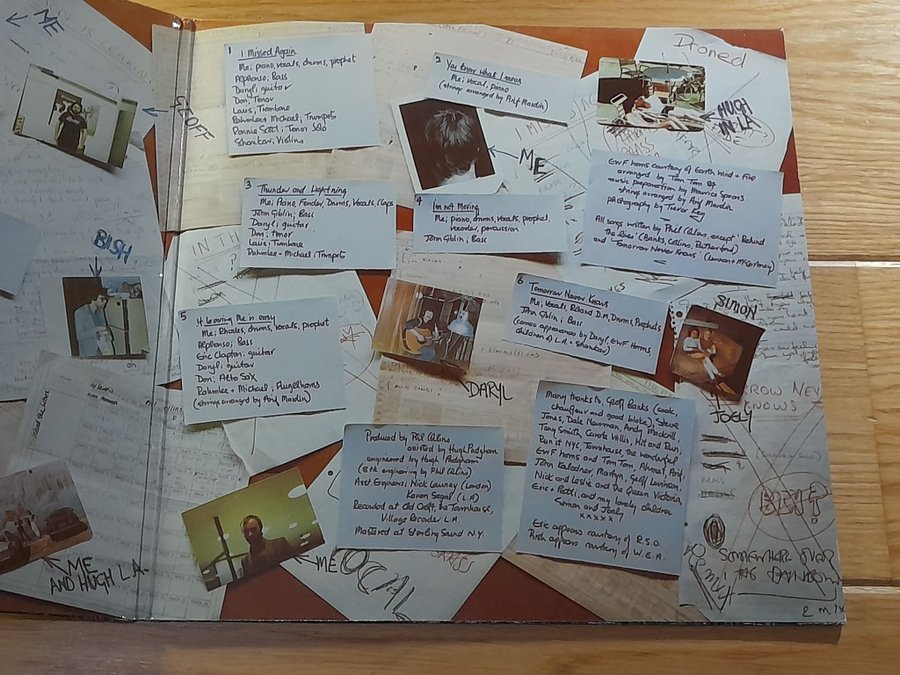 ME
GEOFF
BISH
ME
AND HUGH L.A.
1
I Missed Again
Me; piano, vocals, drums, prophet
Alphonso; Bass
Daryl; guitar
Don; Tenor
Louis; Trombone
Rahmlee + Michael; Trumpets
Ronnie Scott; Tenor Solo
Shankar; Violins
2 You Know What I mean
Me; vocal, piano
(strings arranged by Arif Mardin)
ME
Droned
HUGH
IN L.A.
3
Thunder and Lightning
Me; Piano, Fender, Drums, Vocals, Claps
John Giblin; Bass
Daryl; guitar
Don; Tenor
Louis; Trombone
Rahmlee + Michael; Trumpets
4
I'm not Moving
Me; piano, drums, vocals, prophet,
vocoder, percussion
John Giblin; Bass
EWF horns courtesy of Earth Wind + Fire
arranged by Tom Tom 84
music preparation by Maurice Spears
strings arranged by Arif Mardin
photography by Trevor Key
All songs written by Phil Collins, except 'Behind
the Lines' (Banks, Collins, Rutherford)
and Tomorrow Never Knows (Lennon + McCartney)
IN TH
5
If Leaving Me is easy
Me; Rhodes, drums, vocals, prophet
Alphonso; Bass
Eric Clapton; guitar
Daryl; guitar
Don; Alto Sax
Rahmlee + Michael; Flugelhorns
(strings arranged by Arif Mardin)
DARYL
6
Tomorrow Never Knows
Me; Vocals, Roland D.M, Drums, Prophets
John Giblin; Bass
(cameo appearances by Daryl, EWF Horns,
children of L.A. + Shankar)
SIMON
JOELY
KNOWS
Produced by Phil Collins
assisted by Hugh Padgham
engineered by Hugh Padgham
(8TR engineering by Phil Collins)
Asst Engineers; Nick Launay (London)
Karen Siegel (L.A)
Recorded at Old Croft, the Townhouse,
Village Recorder L.A.
Mastered at Sterling Sound N.Y.
Many thanks to, Geoff Banks (cook,
chauffeur and good bloke), Steve
Jones, Dale Newman, Andy Mackrill,
Tony Smith, Carole Willis, Hit and Run,
Run it NYC, Townhouse, the wonderful
EWF horns and Tom Tom, Ahmet, Arif,
John Kalodner, Martyn, Geoff Levinson,
Nick and Leslie and the Queen Victoria,
Eric + Patti, and my lovely children
Simon and Joely
x x x x x
Eric appears courtesy of R.S.O.
Arif appears courtesy of W.E.A.
ME
VOCAL
BEST?
SOMEWHERE OVER
THE RAINBOW